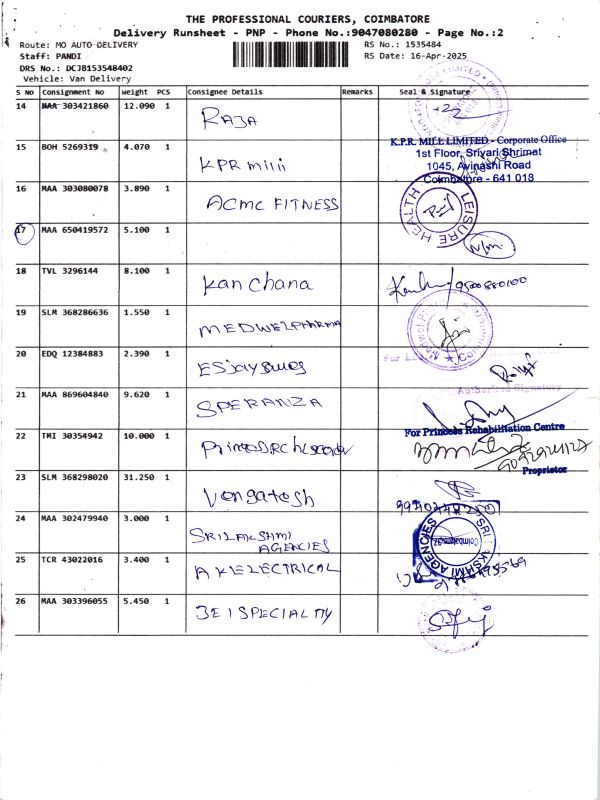 THE PROFESSIONAL COURIERS, COIMBATORE
Delivery Runsheet - PNP - Phone No.:9047080280 - Page No.:2
Route: MO AUTO DELIVERY
RS No.: 1535484
Staff: PANDI
RS Date: 16-Apr-2025
DRS No.: DCJB153548402
Vehicle: Van Delivery
S NO Consignment No Weight PCS Consignee Details Remarks Seal & Signature
14 MAA 303421860 12.090 1 RAJA
15 BOH 5269319 4.070 1 KPR mill
K.P.R. MILL LIMITED - Corporate Office
1st Floor, Srivari Shrimat
1045, Avinashi Road
Coimbatore - 641 018
16 MAA 303080078 3.890 1 ACMC FITNESS
LEISURE HEALTH
17 MAA 650419572 5.100 1
18 TVL 3296144 8.100 1 Kanchana
19 SLM 368286636 1.550 1 MEDWELPHARMA
20 EDQ 12384883 2.390 1
Authorised Signatory
21 MAA 869604840 9.620 1 SPERANZA
For Princess Rehabilitation Centre
22 TMI 30354942 10.000 1
Proprietor
23 SLM 368298020 31.250 1 Vengatesh
24 MAA 302479940 3.000 1 SRILAKSHMI
AGENCIES
25 TCR 43022016 3.400 1 AKELECTRICAL
26 MAA 303396055 5.450 1 3E1SPECIALITY